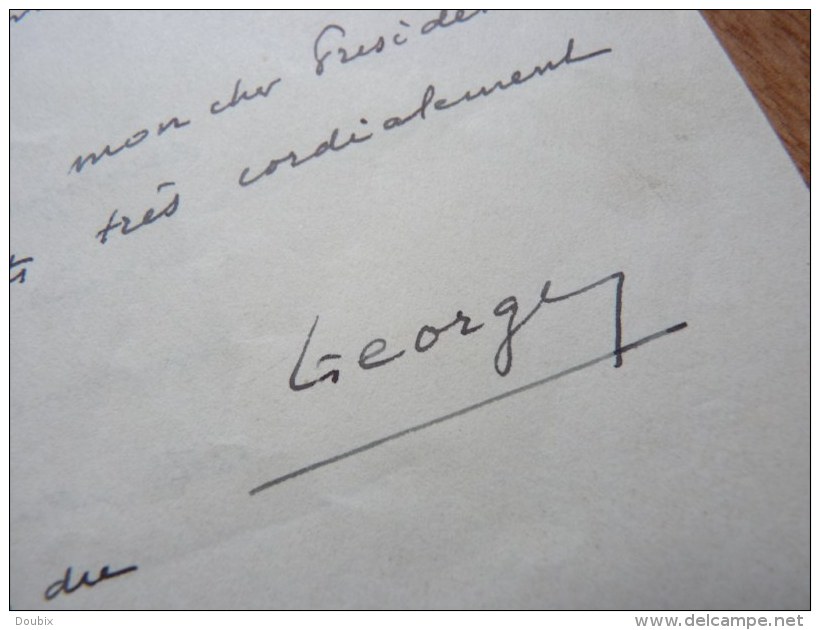 mon cher Préside
très cordialement
Georgey
du
Doubix
www.delcampe.net